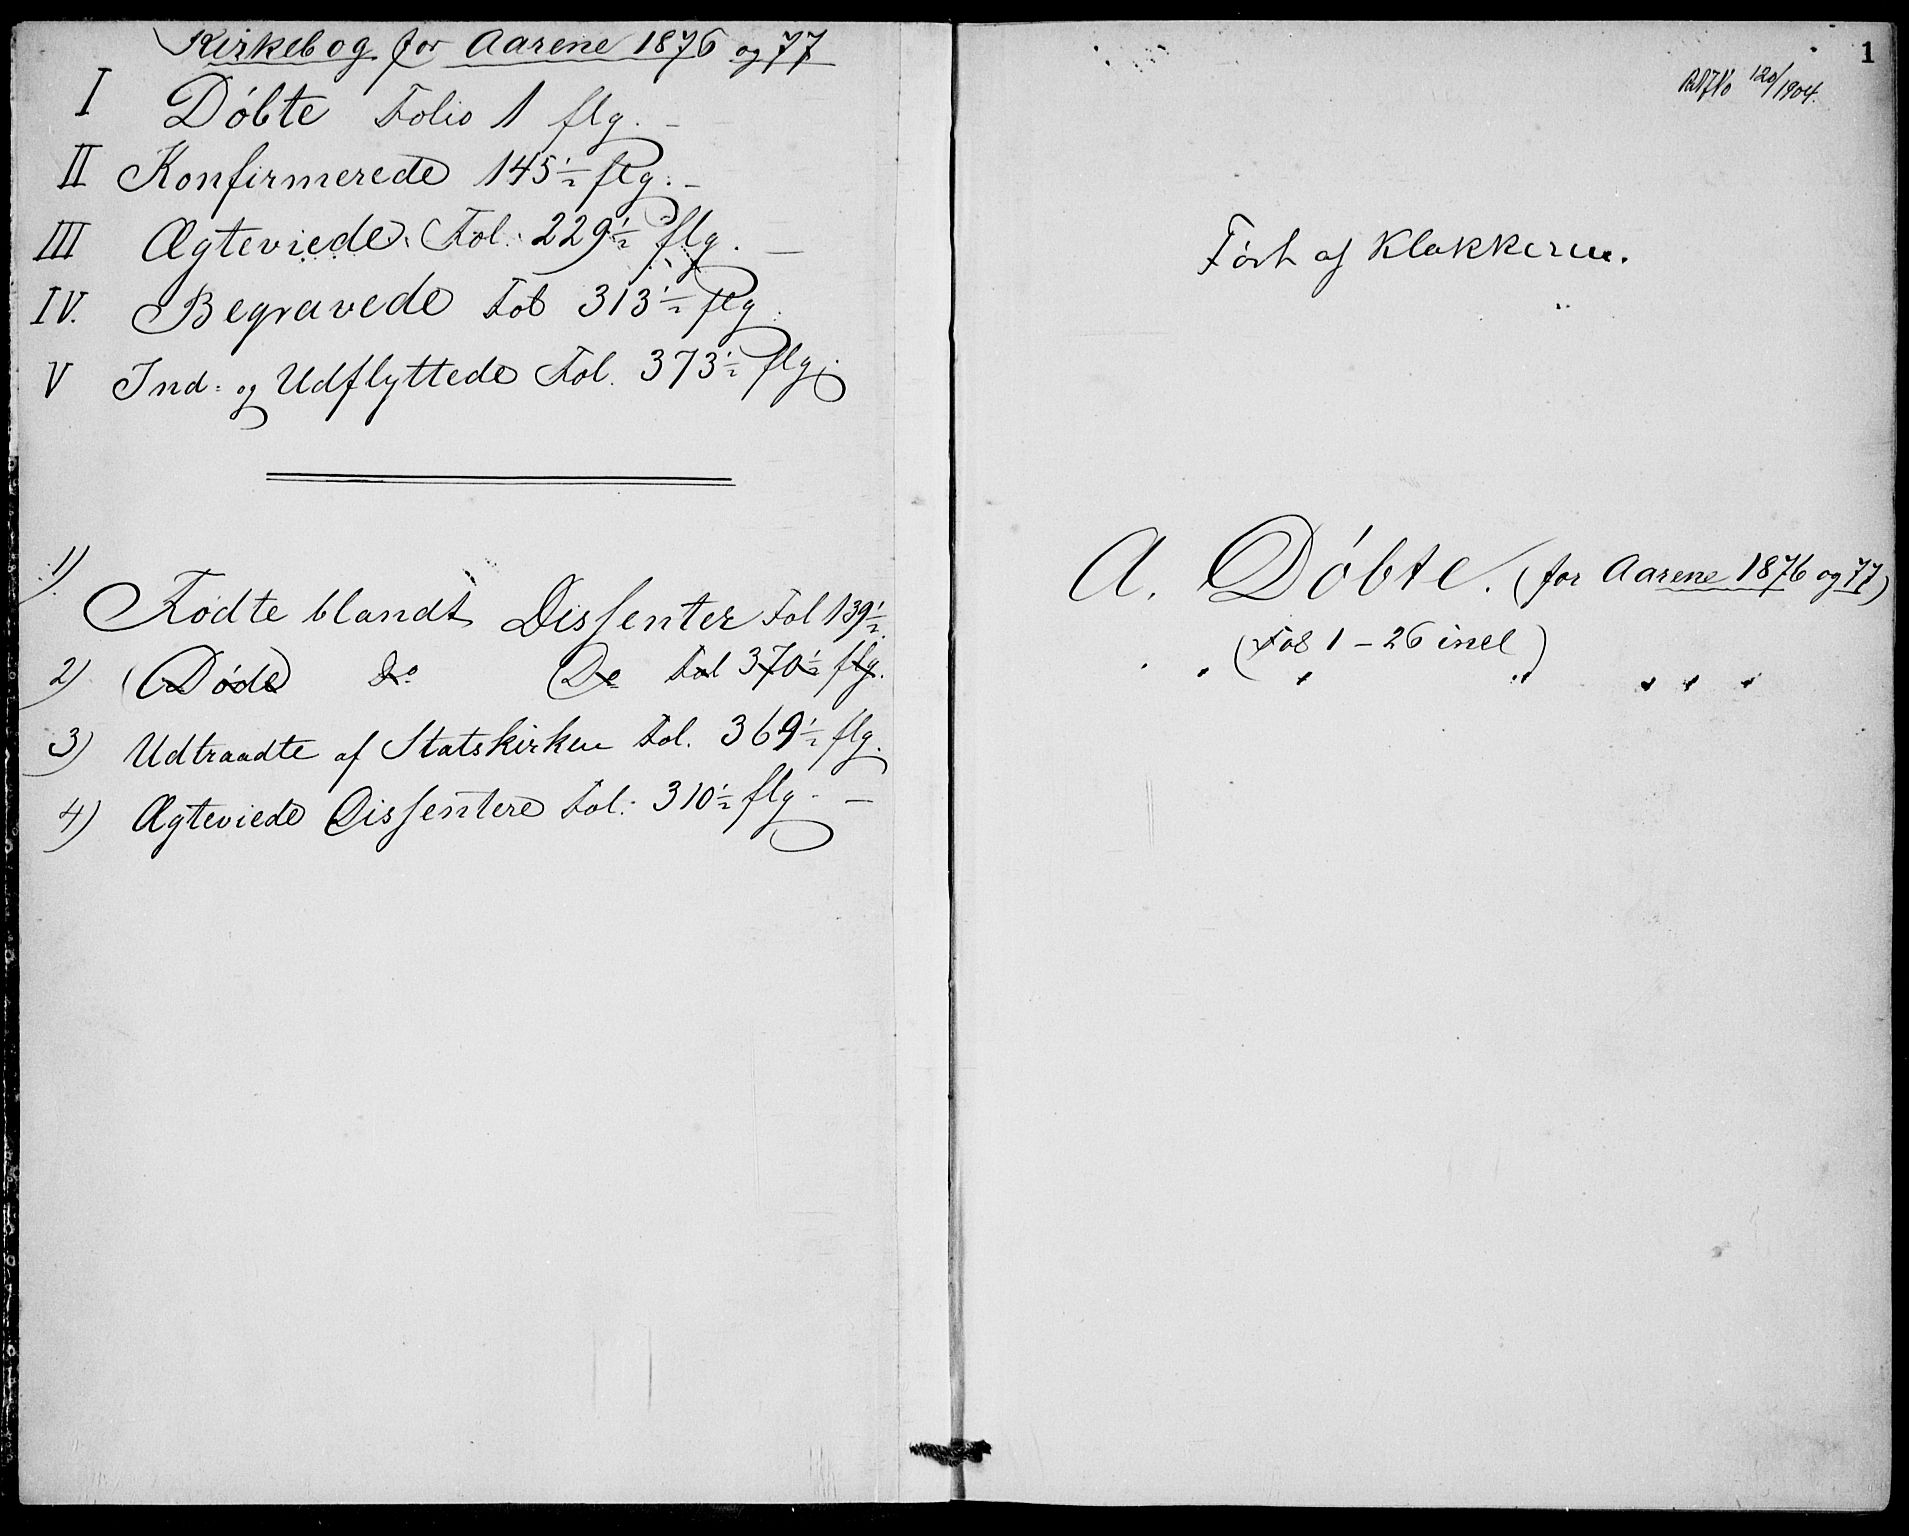 Kirkebog for Aarene 1876 og 77
I Döbte Folio 1 flg. –
II Konfirmerede 145½ flg. –
III Ægteviede Fol. 229½ flg. –
IV. Begravede Fol 313½ flg.
V Ind= og Udflyttede Fol. 373½ flg.
1) Födte blandt Dissenter Fol 139½.
2) Døde do Do Fol 370½ flg.
3) Udtraadte af Statskirken Fol. 369½ flg.
4) Ægteviede Dissentere Fol. 310½ flg. –
1
120/1904.
Ført af Klokkeren.
A. Döbte. (for Aarene 1876 og 77)
(Fol 1 – 26 incl)